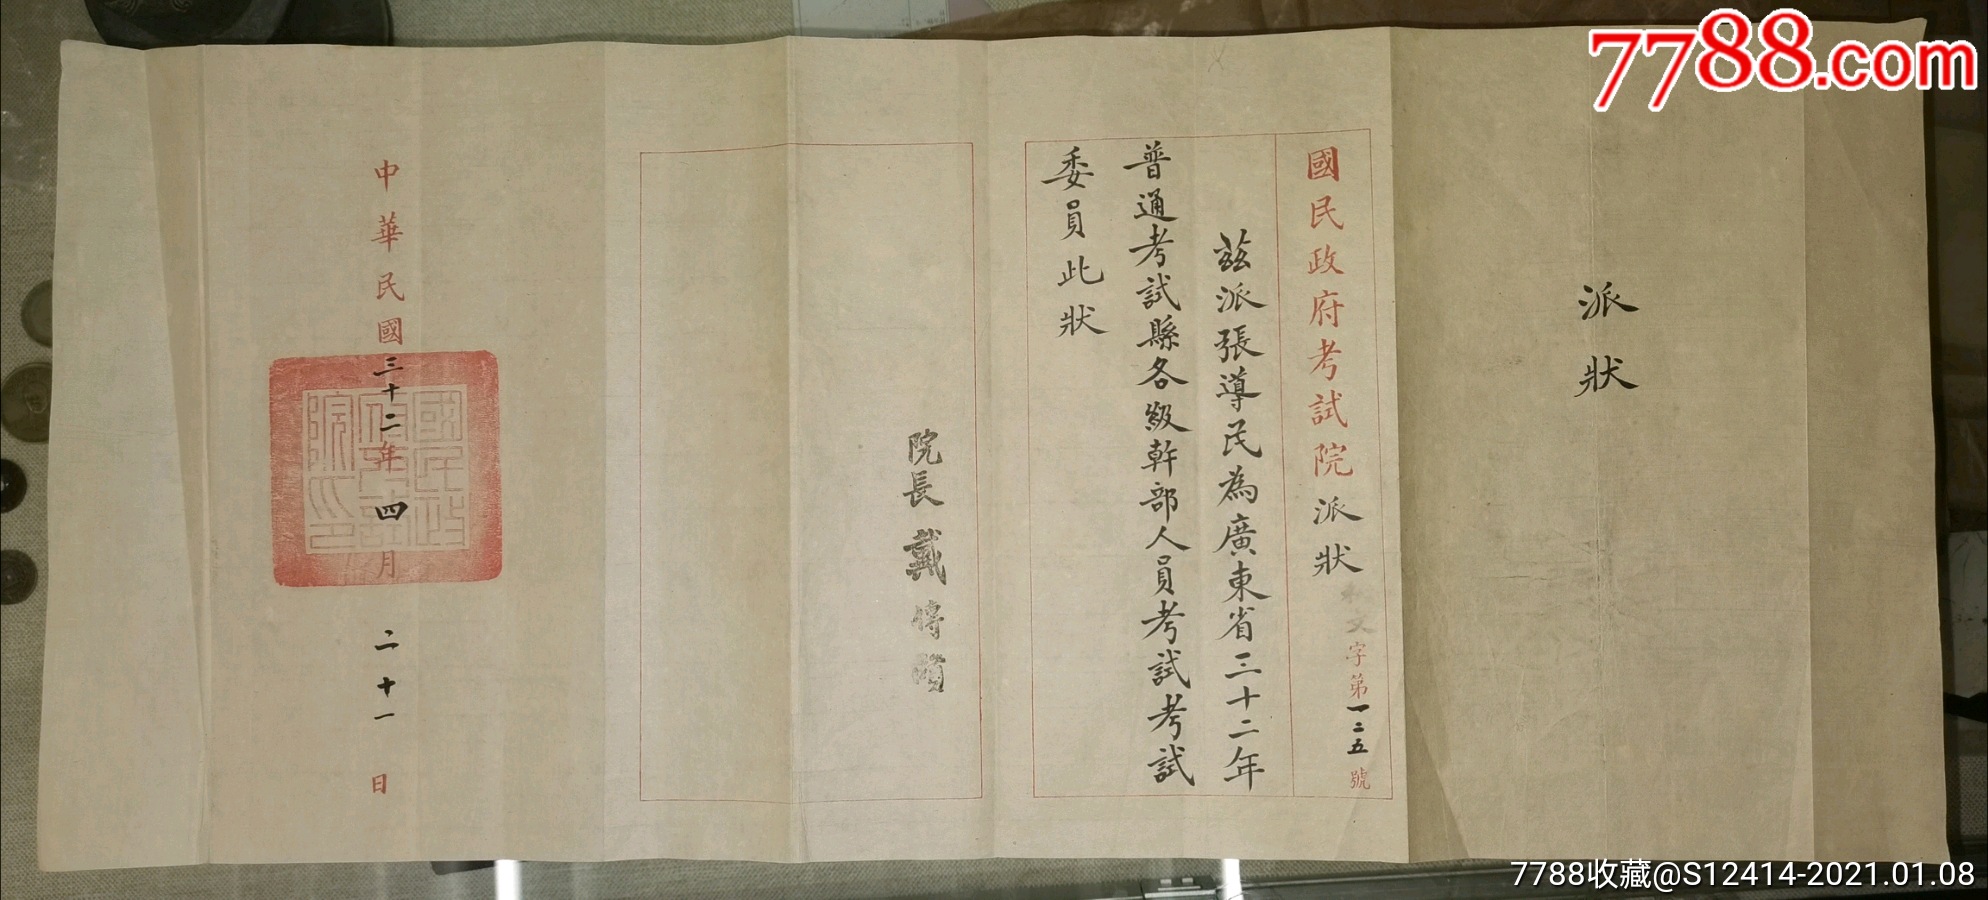 7788.com
派狀
國民政府考試院派狀
文字第一二五號
茲派張導民為廣東省三十二年
普通考試縣各級幹部人員考試考試
委員此狀
院長戴傳賢
中華民國三十二年四月二十一日
國民政府考試院印
7788收藏@S12414-2021.01.08